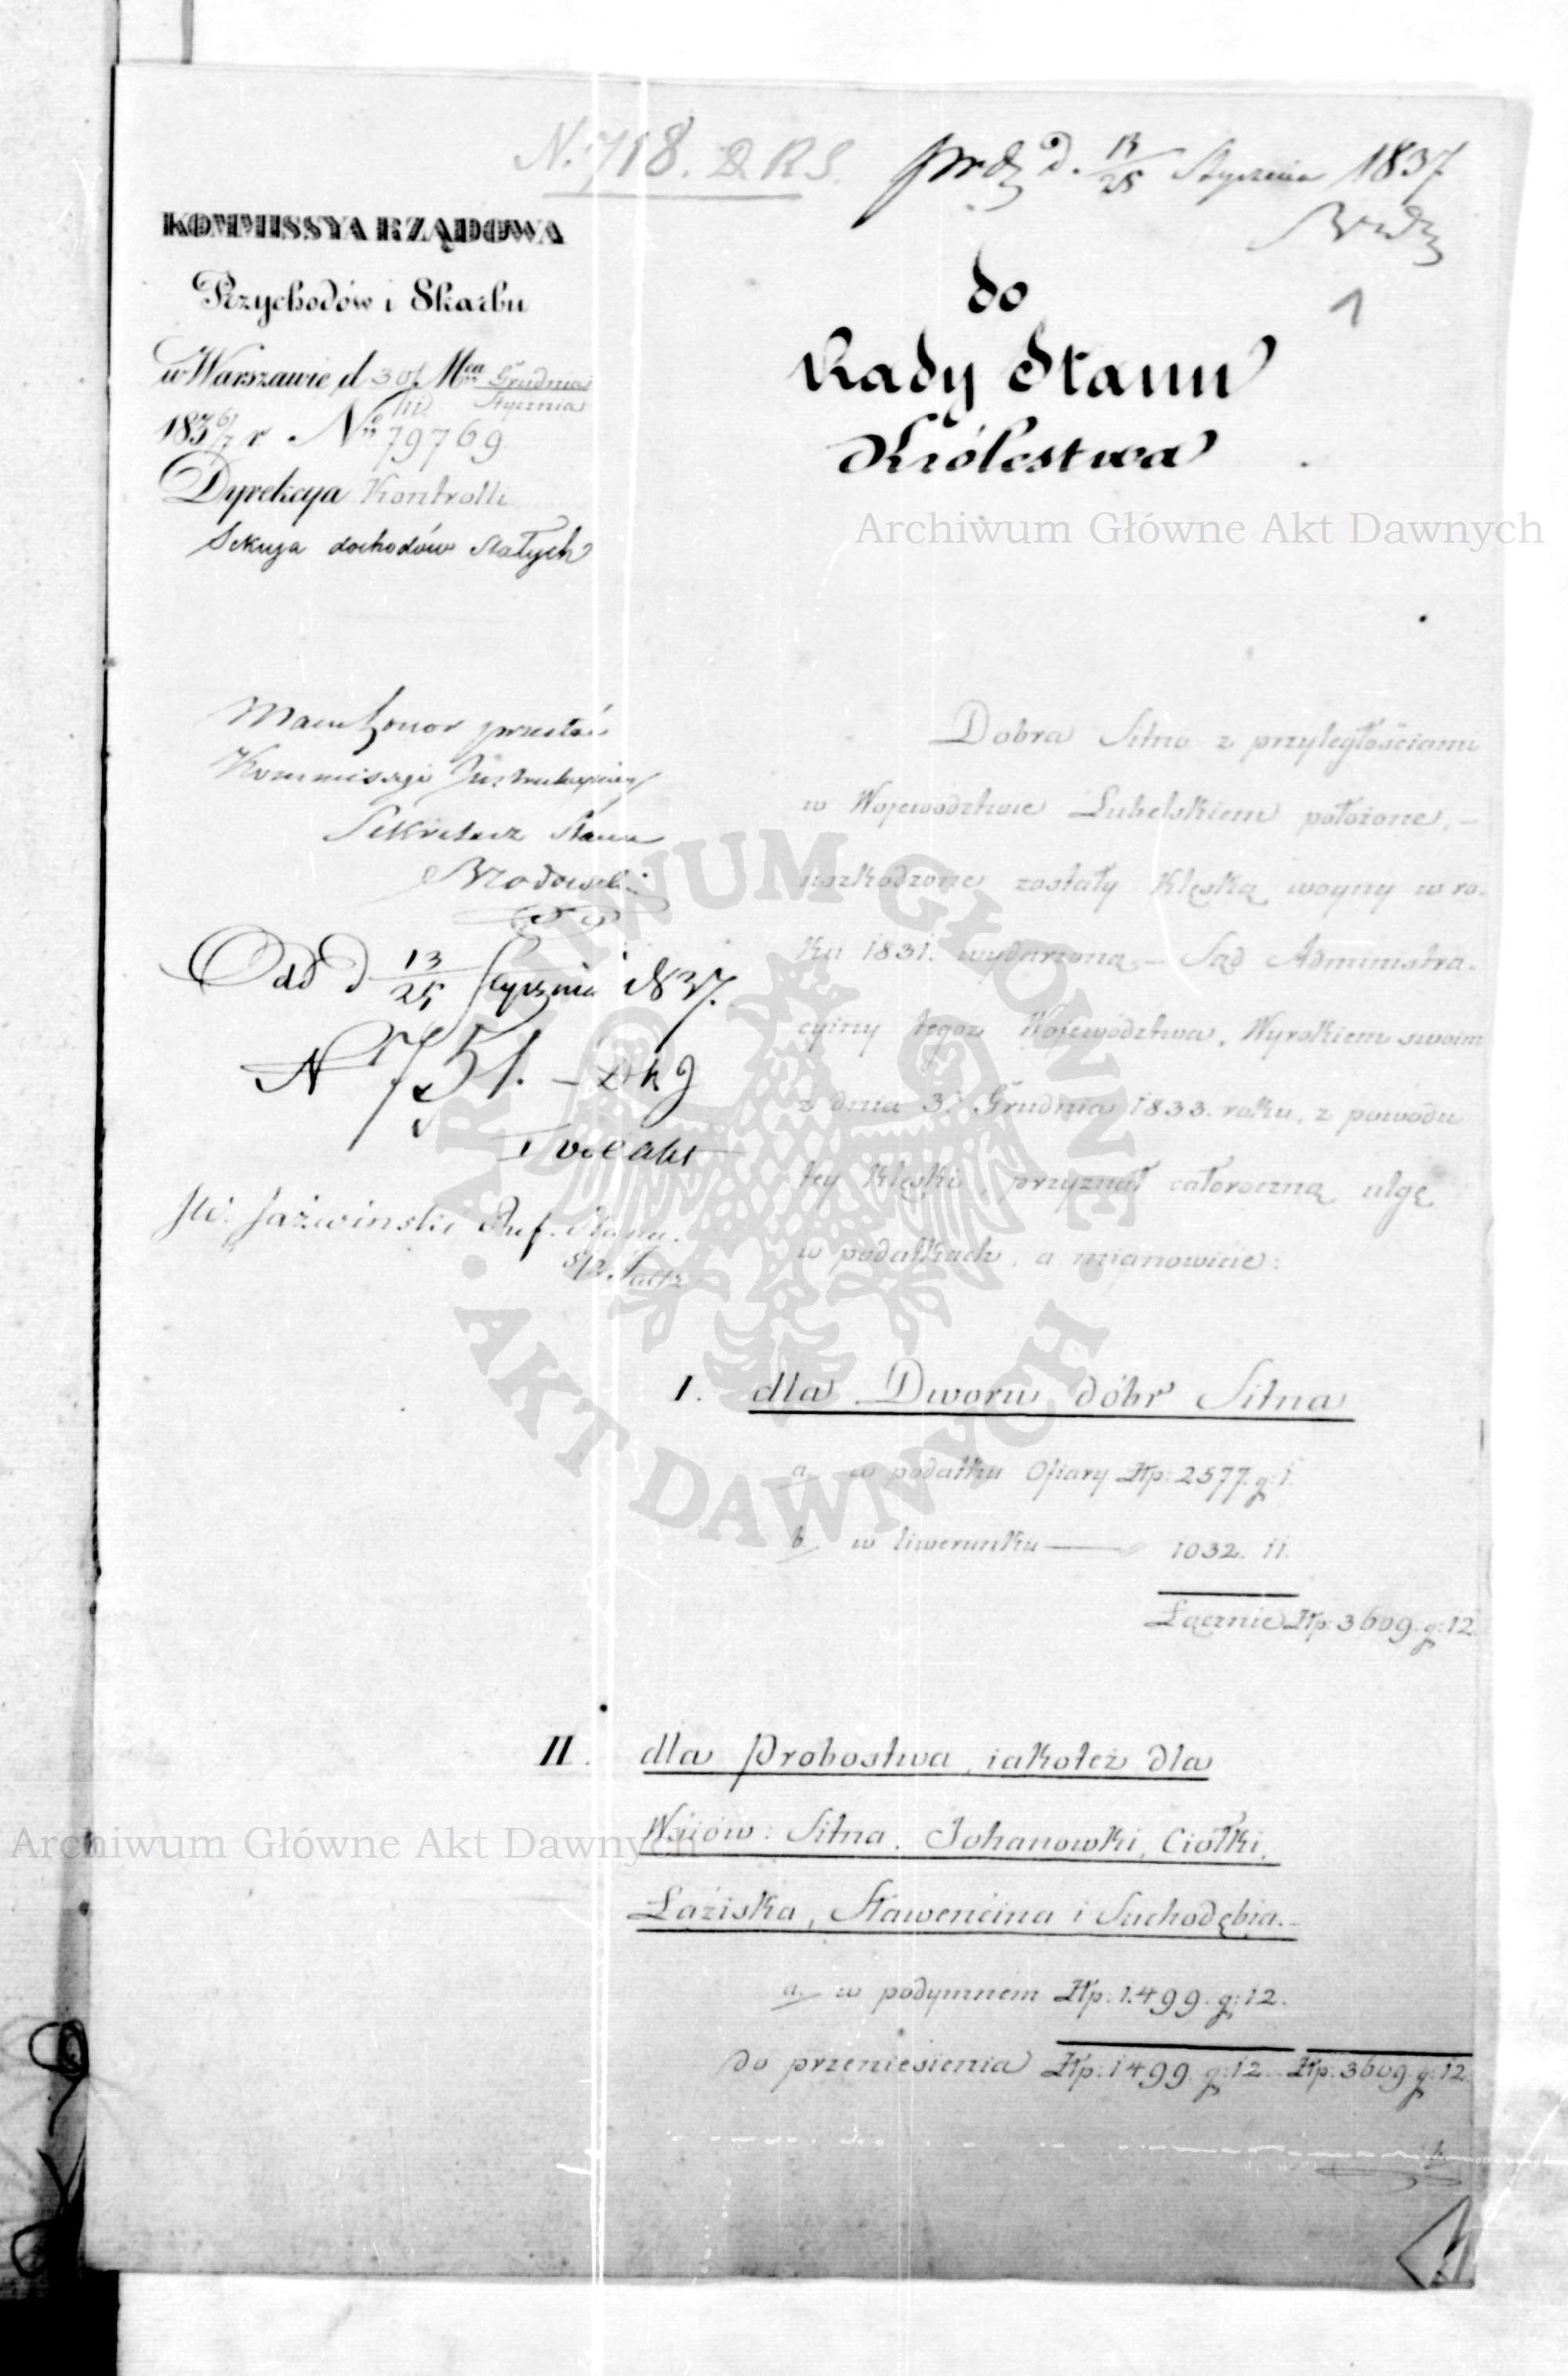 N. 718. D.R.S.
d. 13/25 Stycznia 1837
KOMMISSYA RZĄDOWA
Przychodów i Skarbu
w Warszawie d 30/11 Mca Grudnia/Stycznia
1836/7 r No 79769
Dyrekcya Kontrolli
Sekcya dochodów Stałych
1
do
Rady Stanu
Królestwa
Archiwum Główne Akt Dawnych
przesłać
Kommissyi Instrukcyjney
Sekretarz Stanu
Brodowski
Odd d 13/25 Stycznia 1837.
N 751.
JW. Jaźwinski Ref. Stanu.
Dobra Sitno z przyległościami
w Wojewodztwie Lubelskiem położone, –
uszkodzone zostały klęską woyny w ro-
ku 1831. wydarzoną, – Sąd Administra-
cyiny tegoż Wojewodztwa, Wyrokiem swoim
z dnia 31 Grudnia 1833. roku, z powodu
tey klęski, przyznał całoroczną ulgę
w podatkach, a mianowicie:
I. dla Dworu dóbr Sitna
a. w podatku Ofiary Złp: 2577. g: 1.
b. w liwerunku — 1032. 11.
Łącznie Złp: 3609. g: 12.
II. dla Probostwa, iakoteż dla
Wsiów: Sitna, Johanowki, Ciołki,
Archiwum Główne Akt Dawnych
Łaziska, Stawencina i Suchodębia. –
a. w podymnem Złp: 1499. g: 12.
do przeniesienia Złp: 1499. g: 12. Złp: 3609. g: 12.
ARCHIWUM GŁÓWNE · AKT DAWNYCH ·